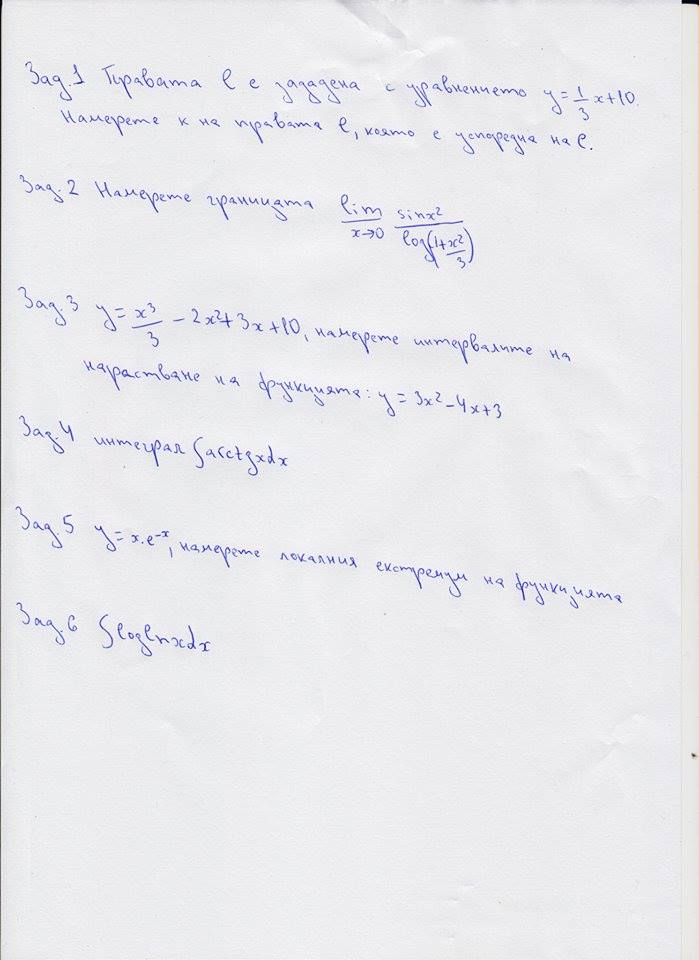 Зад.1 Правата l е зададена с уравнението y=1/3 x+10.
Намерете k на правата l, която е успоредна на l.
Зад.2 Намерете границата lim x→0 sinx²/log(1+x²/3)
Зад.3 y=x³/3 - 2x²+3x+10, намерете интервалите на
нарастване на функцията: y=3x²-4x+3
Зад.4 интеграл ∫arctgxdx
Зад.5 y=x.e⁻ˣ, намерете локалния екстремум на функцията
Зад.6 ∫loglnxdx